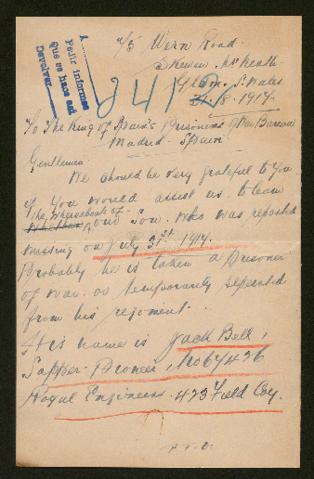 A
Pedir informes
Que se haga así
Devolver
2412
45 Wern Road
Skewen, Nr Neath
Glam. S. Wales
8. 1917
To The King of Spain's Prisoners of War Bureau
Madrid - Spain
Gentlemen
We should be very grateful to You
if You would assist us to learn
the whereabouts of
our Son. Who was reported
missing on July 31st 1917.
Probably he is taken a Prisoner
of war. or temporarily separated
from his regiment.
His name is Jack Bell,
Sapper. Pioneer, No 67426
Royal Engineers. 423 Field Coy.
P.T.O.